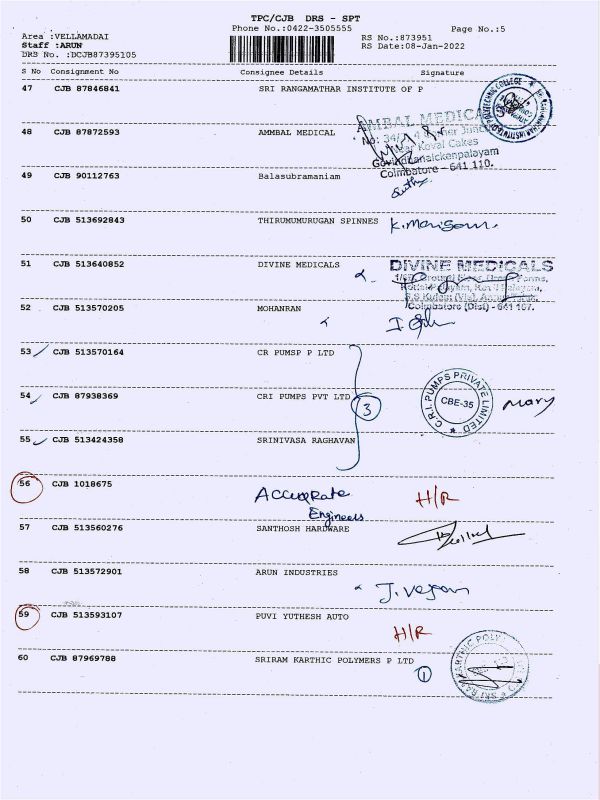 TPC/CJB DRS - SPT
Phone No.:0422-3505555
Page No.:5
Area :VELLAMADAI
Staff :ARUN
DRS No. :DCJB87395105
RS No.:873951
RS Date:08-Jan-2022
S No Consignment No Consignee Details Signature
47 CJB 87846841 SRI RANGAMATHAR INSTITUTE OF P
48 CJB 87872593 AMMBAL MEDICAL
AMBAL MEDICAL
Koval Cakes
Govindanaickenpalayam
Coimbatore - 641 110.
49 CJB 90112763 Balasubramaniam
50 CJB 513692843 THIRUMURUGAN SPINNES
51 CJB 513640852 DIVINE MEDICALS
DIVINE MEDICALS
Coimbatore (Dist) - 641 107.
52 CJB 513570205 MOHANRAN
53 CJB 513570164 CR PUMSP P LTD
54 CJB 87938369 CRI PUMPS PVT LTD
3
C.R.I. PUMPS PRIVATE LIMITED
CBE-35
Mary
55 CJB 513424358 SRINIVASA RAGHAVAN
56 CJB 1018675
Accurate
Engineers
H/R
57 CJB 513560276 SANTHOSH HARDWARE
58 CJB 513572901 ARUN INDUSTRIES
59 CJB 513593107 PUVI YUTHESH AUTO
H/R
60 CJB 87969788 SRIRAM KARTHIC POLYMERS P LTD
1